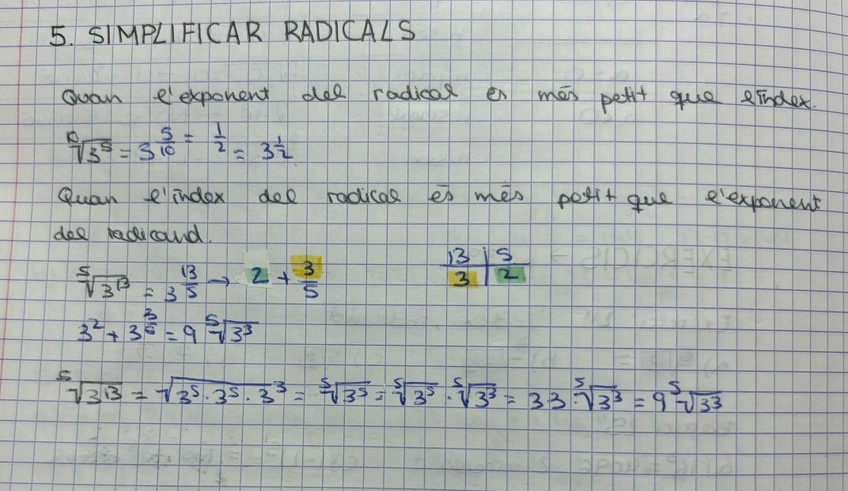 5. SIMPLIFICAR RADICALS
Quan l'exponent del radical és més petit que l'índex.
¹⁰√3⁵ = 3^(5/10) = 1/2 = 3^(1/2)
Quan l'índex del radical és més petit que l'exponent
del radicand.
⁵√3¹³ = 3^(13/5) → 2 + 3/5
13 | 5
3 | 2
3² + 3^(3/5) = 9 ⁵√3³
⁵√3¹³ = √3⁵·3⁵·3³ = ⁵√3⁵ = ⁵√3⁵ · ⁵√3³ = 3·3·⁵√3³ = 9 ⁵√3³